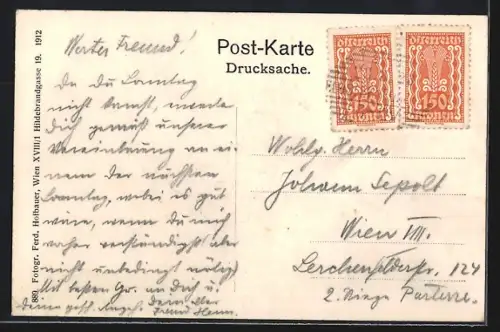 889 Fotogr. Ferd. Hofbauer, Wien XVIII/1 Hildebrandgasse 19. 1912
Werter Freund!
Da Du Sonntag
nicht kamst, werde
Dich gemäß unserer
Vereinbarung an ei-
nem der nächsten
Sonntag, wobei es gut
wäre, wenn Du mich
vorher verständigst aber
nicht unbedingt nötig!
Mit besten Gr. an Dich u.
Deine gesch. Angeh. Dein alter
Freund
Post-Karte
Drucksache.
Österreich
150
Kronen
Österreich
150
Kronen
Wohlg. Herrn
Johann Sepolt
Wien VIII.
Lerchenfelderstr. 124
2. Stiege Parterre.